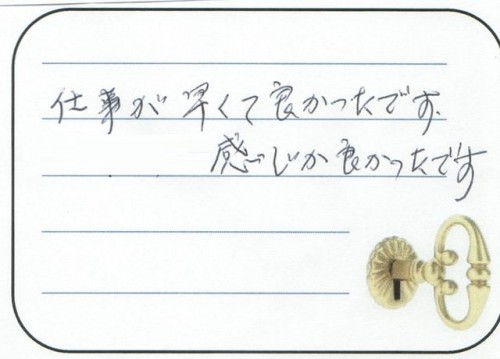 仕事が早くて良かったです、
感じが良かったです